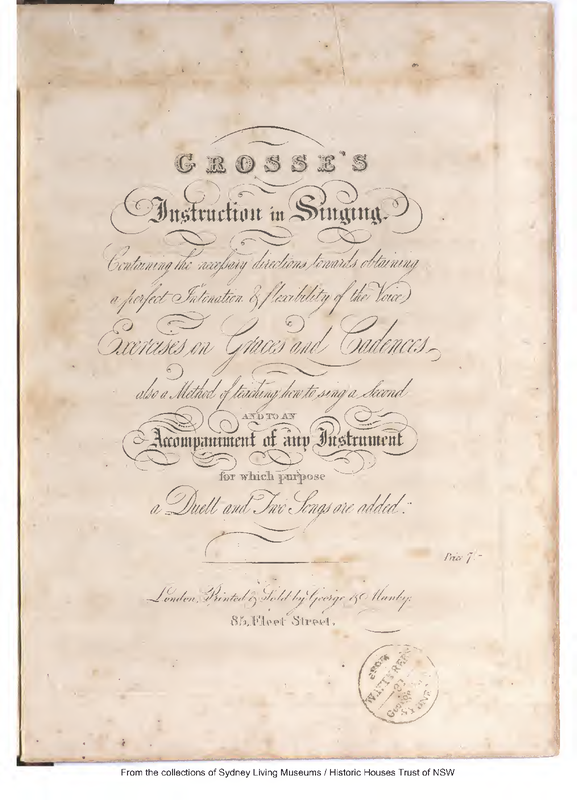 GROSSE'S
Instruction in Singing.
Containing the accessary directions towards obtaining
a perfect Intonation & flexibility of the Voice
Exercises on Graces and Cadences,
also a Method of teaching how to sing a Second
AND TO AN
Accompaniment of any Instrument
for which purpose
a Duett and Two Songs are added.
Price 7/-
London, Printed & Sold by George & Manby,
85, Fleet Street.
FROM
SYDNEY
From the collections of Sydney Living Museums / Historic Houses Trust of NSW